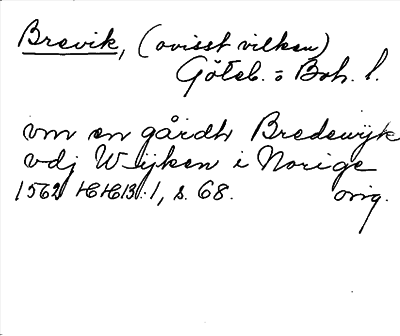 Brevik, (ovisst vilken)
Göteb. o Boh. l.
vm en gårdh Bredewijk
vdj Wijken i Norige
1562 HH13:1, s. 68. orig.